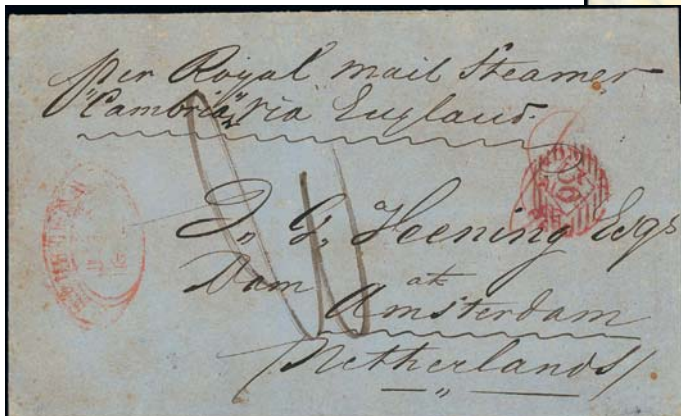 per Royal mail Steamer
"Cambria" via England.
D. G. Heening Esqr
Dam at
Amsterdam
/Netherlands/